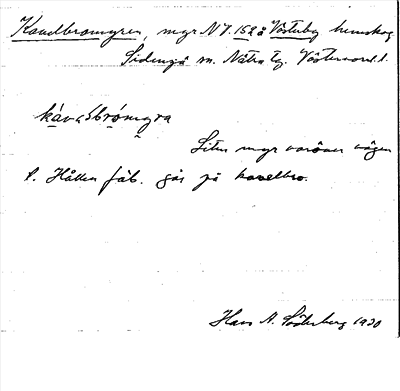 Kavelbromyren, myr N 7.152 å Västerby hemskog
Sidensjö sn. Nätra tg. Västernorrl. l.
kávəlbrómyra
Liten myr varöver vägen
t. Hållen fäb. går på kavelbro.
Hans A. Söderberg 1930